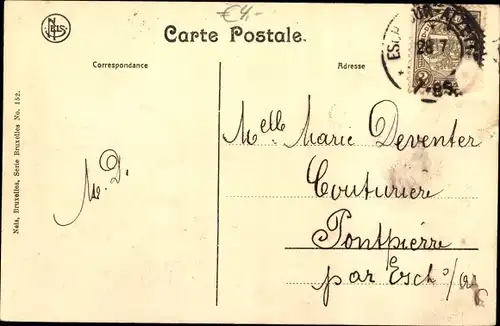 €4,-
NELS
Carte Postale.
Correspondance
Adresse
28 7
Nels, Bruxelles, Serie Bruxelles No. 152.
Melle Marie Deventer
Couturière
Pontpierre
par Esch s/Alz
M. D.